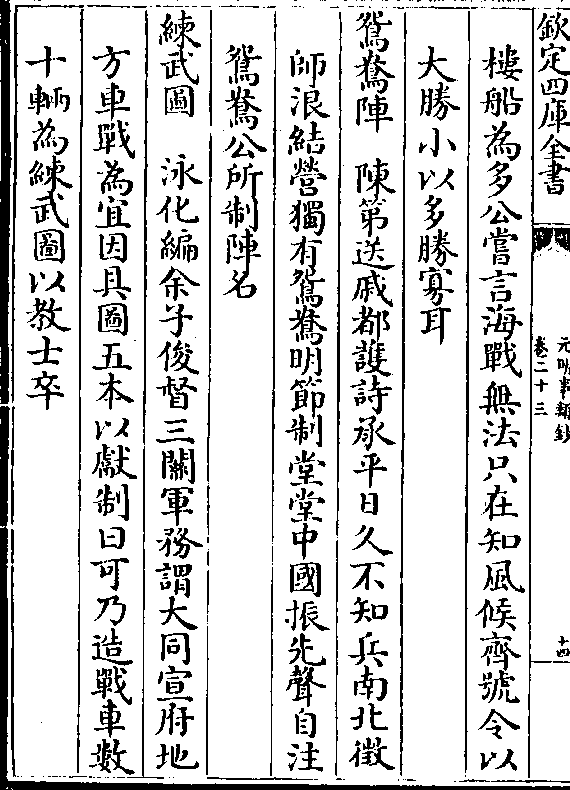 欽定四庫全書
元明事類鈔
卷二十三
十四
樓船為多公嘗言海戰無法只在知風候齊號令以
大勝小以多勝寡耳
鴛鴦陣　陳第送戚都護詩承平日久不知兵南北徵
師浪結營獨有鴛鴦明節制堂堂中國振先聲自注
鴛鴦公所制陣名
練武圖　泳化編余子俊督三關軍務謂大同宣府地
方車戰為宜因具圖五本以獻制曰可乃造戰車數
十輛為練武圖以教士卒